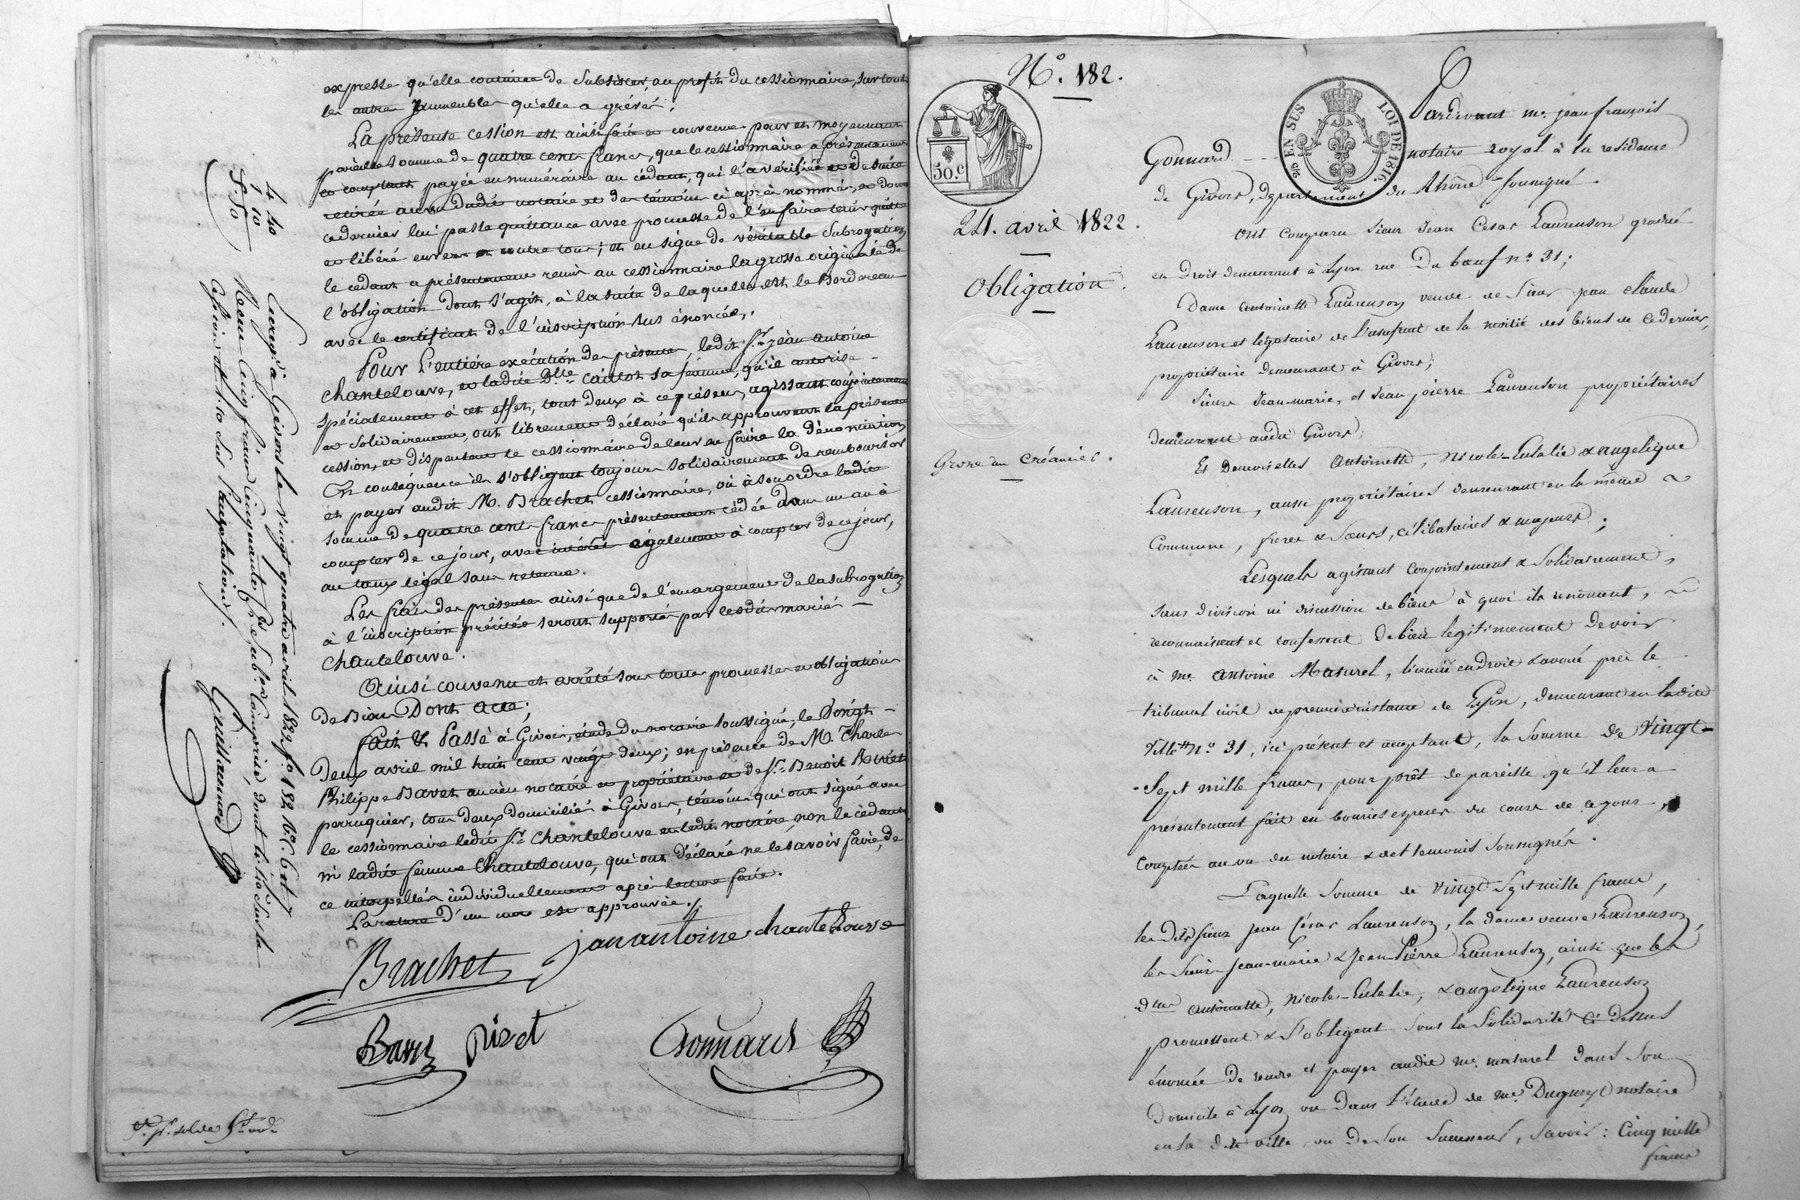 expresse qu'elle continue de subsister, au profit du cessionnaire, sur tous
les autres Immeubles qu'elle a grévés.
La présente cession est ainsi faite et convenue pour et moyennant
pareille somme de quatre cents francs, que le cessionnaire a présentement
et comptant payée en numéraire au cédant, qui l'a vérifiée et de suite
retirée au vu dudit notaire et des témoins ci après nommés, et dont
ce dernier lui passe quittance avec promesse de l'en faire tenir quitte
et libéré envers et contre tous; et en signe de véritable subrogation
le cédant a présentement remis au cessionnaire la grosse originale de
l'obligation dont s'agit, à la suite de laquelle est le Bordereau
avec le certificat de l'inscription sus énoncée.
Pour l'entière exécution des présentes ledit Sr. jean antoine
Chantelouve, et ladite Dlle. Caillot sa femme, qu'il autorise
spécialement à cet effet, tous deux à ce présens, agissant conjointement
et solidairement, ont librement déclaré qu'ils approuvent la présente
cession, et dispensent le cessionnaire de leur en faire la dénonciation
En conséquence ils s'obligent toujours solidairement de rembourser
et payer audit M. Brachet cessionnaire, où à son ordre ladite
somme de quatre cents francs présentement cédée dans un an à
compter de ce jour, avec intérêts également à compter de ce jour,
au taux légal sans retenue.
Les frais des présentes ainsi que de l'émargement de la subrogation
à l'inscription précitée seront supportés par lesdits mariés
Chantelouve.
Ainsi convenu et arrêté sous toutes promesses et obligations
de Biens Dont acte;
fait & Passé à Givors, étude du notaire soussigné, le Vingt
Deux avril mil huit cent vingt deux; en présence de M. Charles
Philippe Bavet ancien notaire et propriétaire et de Sr. Benoit Rivet
perruquier, tous deux domiciliés à Givors, témoins qui ont signé avec
le cessionnaire ledit Sr. Chantelouve et ledit notaire, non le cédant
ni ladite femme Chantelouve, qui ont déclaré ne le savoir faire, de
ce interpellés individuellement après lecture faite.
La rature d'un mot est approuvée.
Brachet jean antoine chantelouve
Rivet Gonnard
4 40
5.50
Enregé. à Givors le vingt quatre avril 1822 fo. 182
Reçu cinq francs cinquante centimes
Guillaumod
No. 182.
EN SUS LOI DE 1816.
50.c
24. avril 1822.
Obligation.
Grosse au Créancier.
Pardevant me. jean françois
Gonnard notaire royal à la résidence
de Givors, département du Rhône soussigné
Ont comparu Sieur Jean César Laurenson gradué
en Droit demeurant à Lyon rue Du bœuf no. 31;
Dame antoinette Laurenson veuve de Sieur jean claude
Laurenson et légataire de l'usufruit de la moitié des biens de ce dernier,
propriétaire demeurant à Givors;
Sieurs Jean-marie, et Jean pierre Laurenson propriétaires
demeurant audit Givors;
Et demoiselles Antoinette, Nicole-Eulalie & angélique
Laurenson, aussi propriétaires demeurant en la même
Commune, frères & Sœurs, célibataires & majeurs;
Lesquels agissant conjointement & Solidairement,
sans division ni discussion de biens à quoi ils renoncent,
reconnaissent et confessent de bien légitimement devoir
à me. antoine Maturel, licencié en droit & avoué près le
tribunal civil de première instance de Lyon, demeurant en ladite
Ville no. 31, ici présent et acceptant, la Somme de Vingt
-Sept mille francs, pour prêt de pareille qu'il leur a
présentement fait en bonnes espèces du cours de ce jour,
comptées au vu du notaire & des témoins soussignés.
Laquelle Somme de Vingt Sept mille francs,
les dits Sieur jean César Laurenson, la dame veuve Laurenson,
les Sieurs Jean-marie & Jean-Pierre Laurenson, ainsi que les
dlles antoinette, Nicole-Eulalie, & angélique Laurenson
promettent & S'obligent sous la Solidarité ci Dessus
énoncée de rendre et payer audit me. maturel dans son
Domicile à Lyon, ou dans l'étude de me. Dugueyt notaire
en la dite ville, ou de son successeur, savoir: Cinq mille
francs